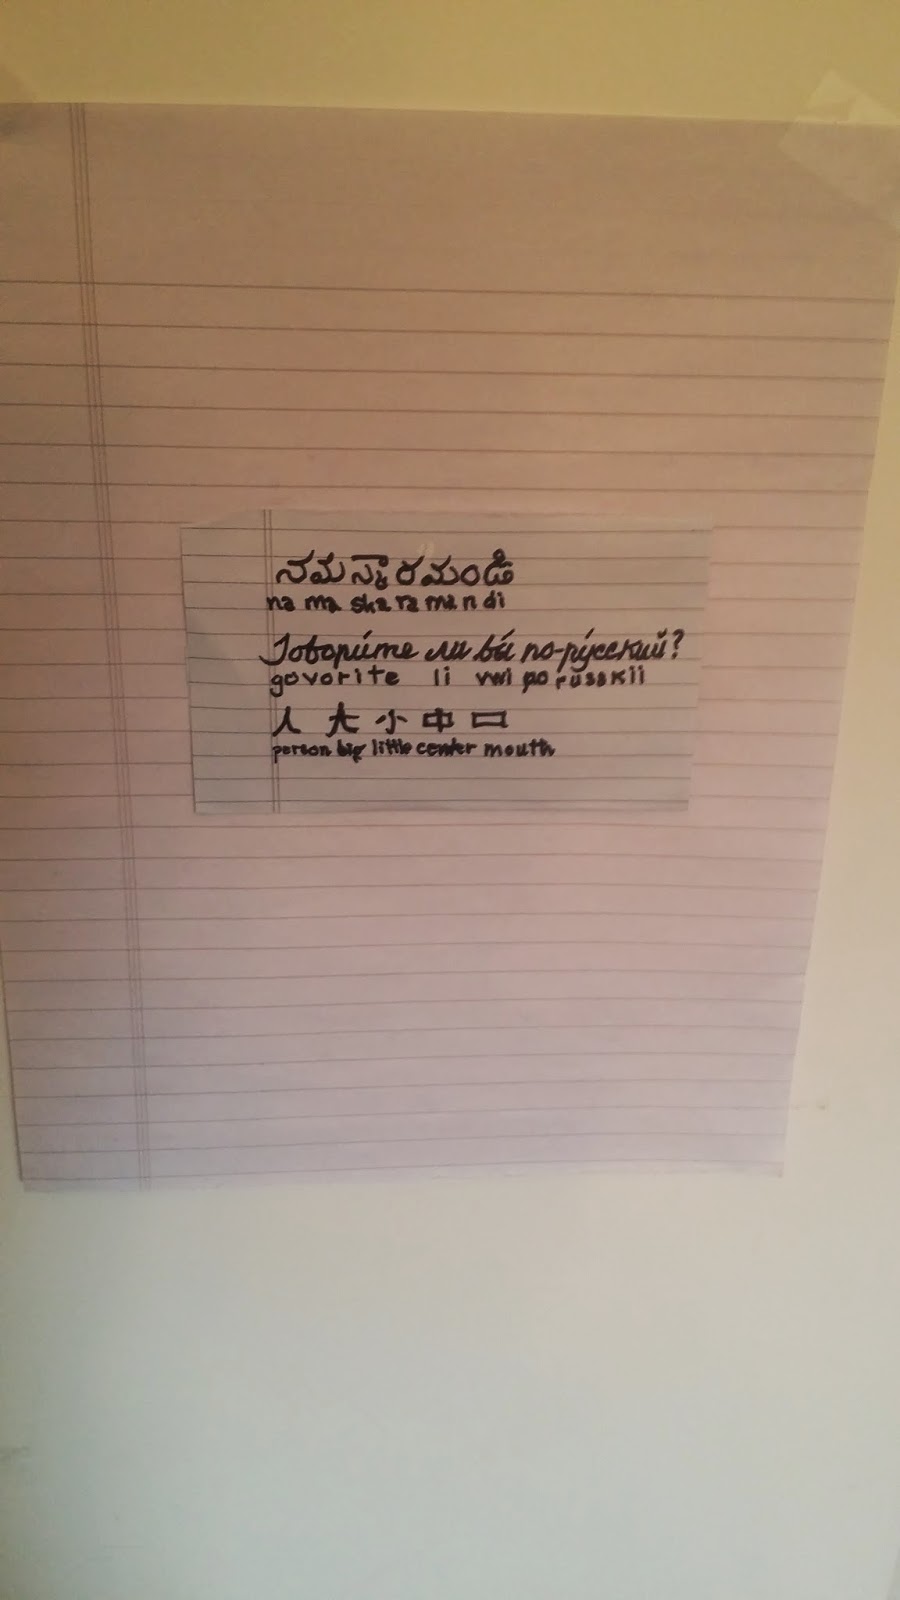 ನಮಸ್ಕಾರಮಂಡಿ
na ma ska ra man di
Говори́те ли вы́ по-ру́сский?
govorite li vwi po russkii
人 大 小 中 口
person big little center mouth